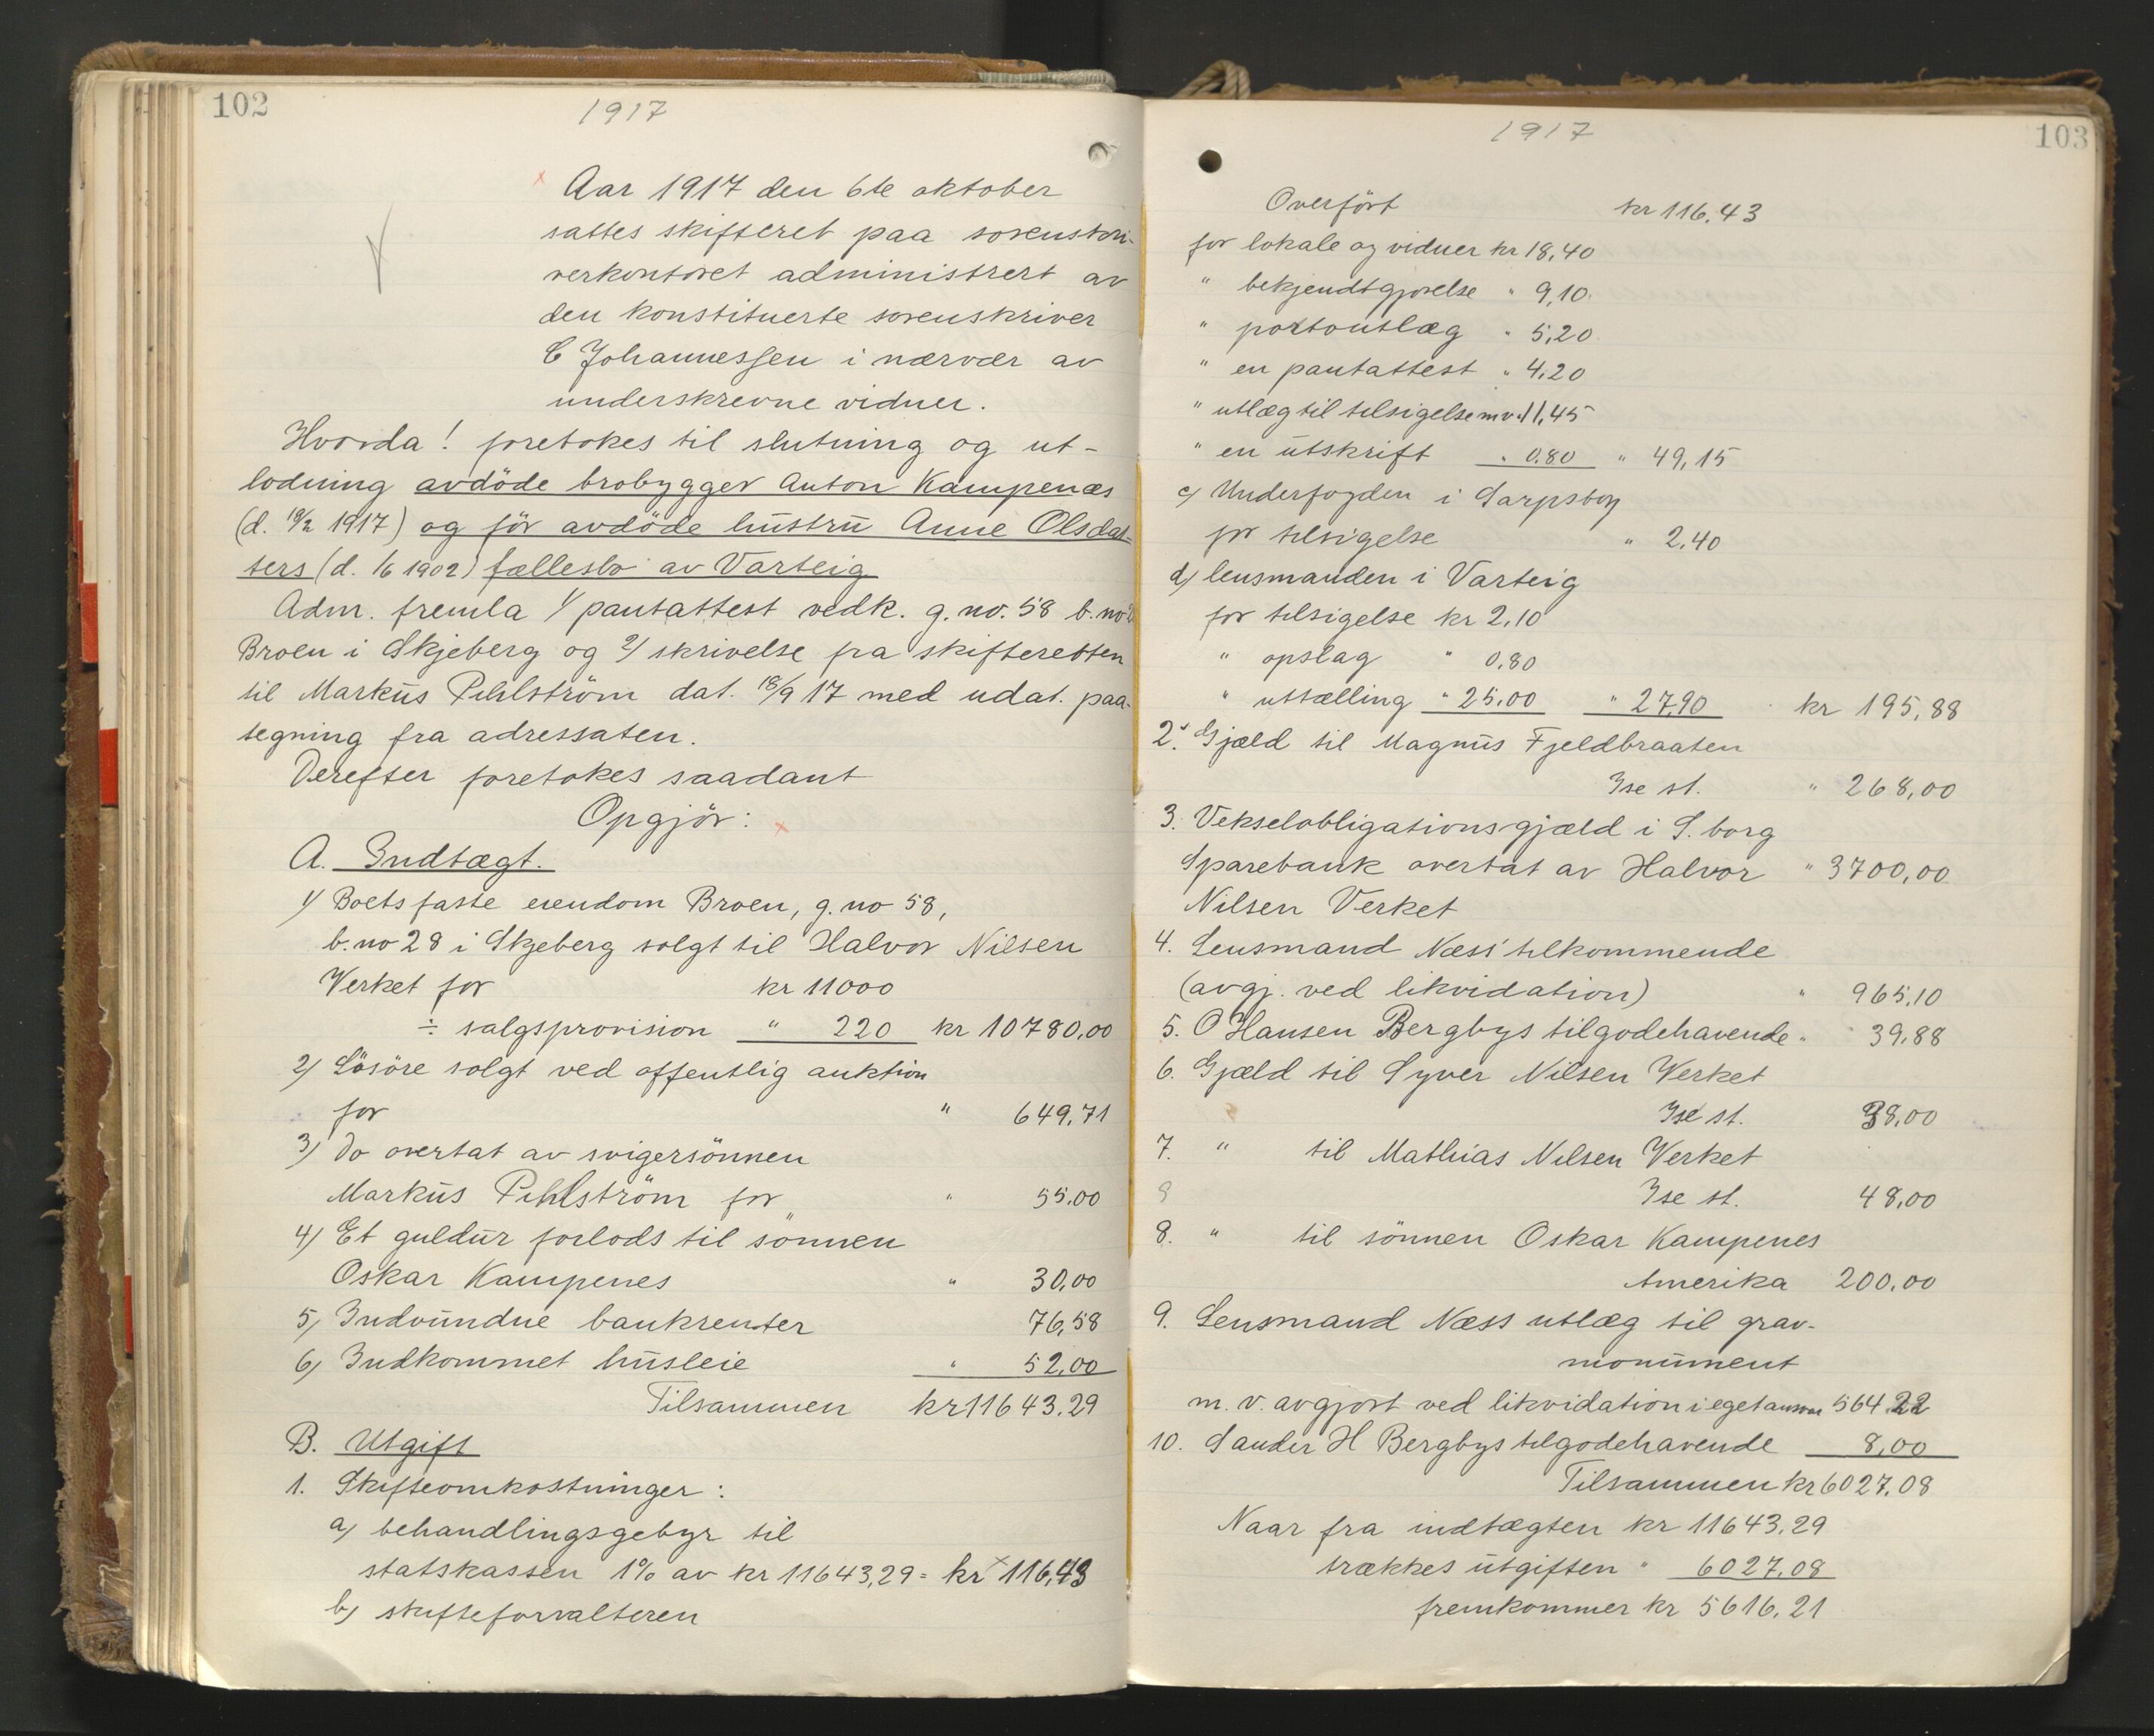 102
1917
Aar 1917 den 6te oktober
sattes skifteret paa sorenskri-
verkontoret administrert av
den konstituerte sorenskriver
C Johannessen i nærvær av
underskrevne vidner.
Hvorda! foretokes til slutning og ut-
lodning avdöde brobygger Anton Kampenæs
(d. 18/2 1917) og för avdöde hustru Anne Olsdat-
ters (d. 1/6 1902) fællesbo av Varteig
Adm. fremla 1/ pantattest vedk. g. no. 58 b. no
Broen i Skjeberg og 2/ skrivelse fra skifteretten
til Markus Pihlström dat. 18/9 17 med udat. paa-
tegning fra adressaten.
Derefter foretokes saadant
Opgjör:
A. Indtægt.
1/ Boets faste eiendom Broen, g. no 58,
b. no 28 i Skjeberg solgt til Halvor Nilsen
Verket for kr 11000
÷ salgsprovision " 220 kr 10780,00
2) Lösöre solgt ved offentlig auktion
for " 649,71
3) Do overtat av svigersönnen
Markus Pihlström for " 55.00
4) Et guldur forlods til sönnen
Oskar Kampenes " 30,00
5) Indvundne bankrenter 76,58
6) Indkommet husleie " 52,00
Tilsammen kr 11643.29
B. Utgift
1. Skifteomkostninger:
a) behandlingsgebyr til
statskassen 1% av kr 11643,29 = kr 116,43
b) skifteforvalteren
103
1917
Overfört kr 116.43
for lokale og vidner kr 18,40
" bekjendtgjörelse " 9,10.
" portoutlæg " 5,20
" en pantattest " 4.20
" utlæg til tilsigelse m v " 11,45
" en utskrift " 0.80 " 49,15
c) Underfogden i Sarpsborg
for tilsigelse " 2,40
d) lensmanden i Varteig
for tilsigelse kr 2,10
" opslag " 0,80
" uttælling " 25.00 " 27,90 kr 195,88
2. Gjæld til Magnus Fjeldbraaten
Ise st. " 268,00
3. Vekselobligationsgjæld i S. borg
Sparebank overtat av Halvor " 3700,00
Nilsen Verket
4. Lensmand Næss' tilkommende
(avgj. ved likvidation) " 965,10
5. O Hansen Bergbys tilgodehavende " 39,88
6. Gjæld til Syver Nilsen Verket
Ise st. 38,00
7. " til Mathias Nilsen Verket
Ise st. 48,00
8. " til sönnen Oskar Kampenes
Amerika 200,00
9. Lensmand Næss utlæg til grav-
monument
m. v. avgjort ved likvidation i eget ansvar 564.22
10. Sander H Bergbys tilgodehavende 8,00
Tilsammen kr 6027,08
Naar fra indtægten kr 11643,29
trækkes utgiften " 6027,08
fremkommer kr 5616,21